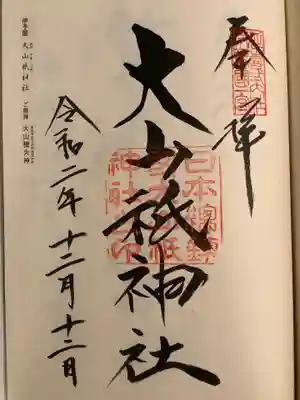 奉拝
大山祇神社
日本總鎮守大山祇神社之印
令和二年十二月十二日
伊予国 大山祇神社 ご祭神 大山積大神